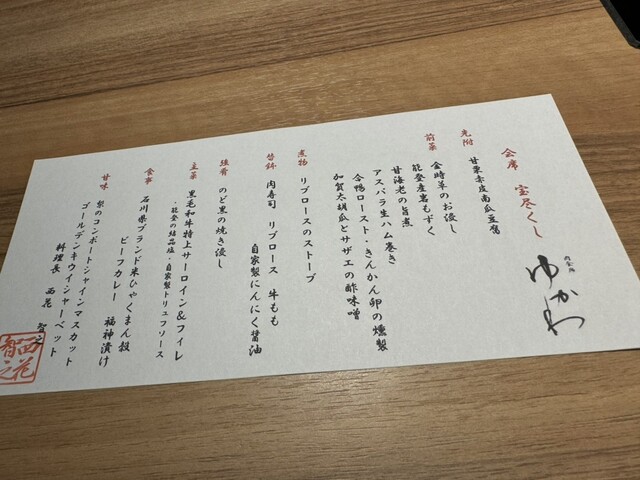 ゆかわ
会席 宝尽くし
先附 甘栗赤皮南瓜豆腐
前菜 金時草のお浸し
能登産岩もずく
甘海老の旨煮
アスパラ生ハム巻き
合鴨ロースト・きんかん卵の燻製
加賀太胡瓜とサザエの酢味噌
煮物 リブロースのストーブ
替鉢 肉寿司 リブロース 牛もも
自家製にんにく醤油
強肴 のど黒の焼き浸し
主菜 黒毛和牛特上サーロイン&フィレ
・能登の結晶塩・自家製トリュフソース
食事 石川県ブランド米ひゃくまん穀
ビーフカレー 福神漬け
甘味 梨のコンポートシャインマスカット
ゴールデンキウイシャーベット
料理長 西花 智之
西花
智之